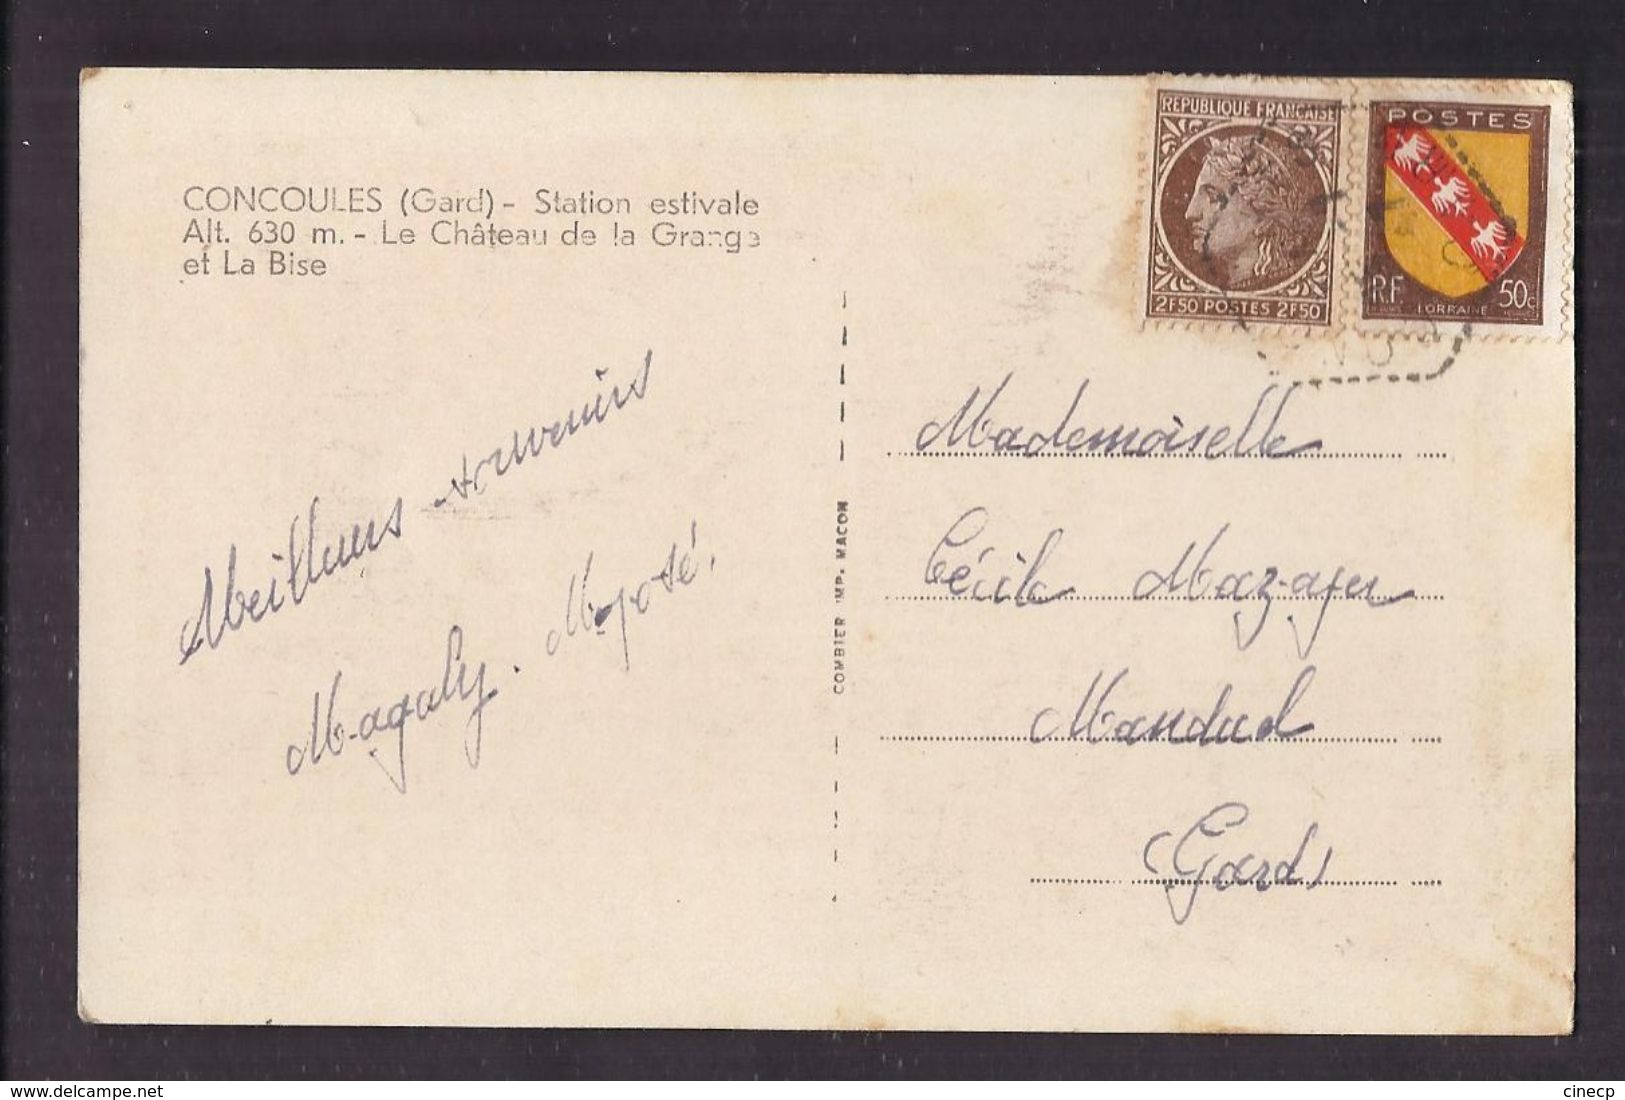 CONCOULES (Gard) - Station estivale
Alt. 630 m. - Le Château de la Grange
et La Bise
REPUBLIQUE FRANÇAISE
2F50 POSTES 2F50
POSTES
RF
LORRAINE
50c
Meilleurs souvenirs
Magaly. M-José.
COMBIER IMP. MACON
Mademoiselle
Cécile Mazayer
Manduel
Gard
cinecp